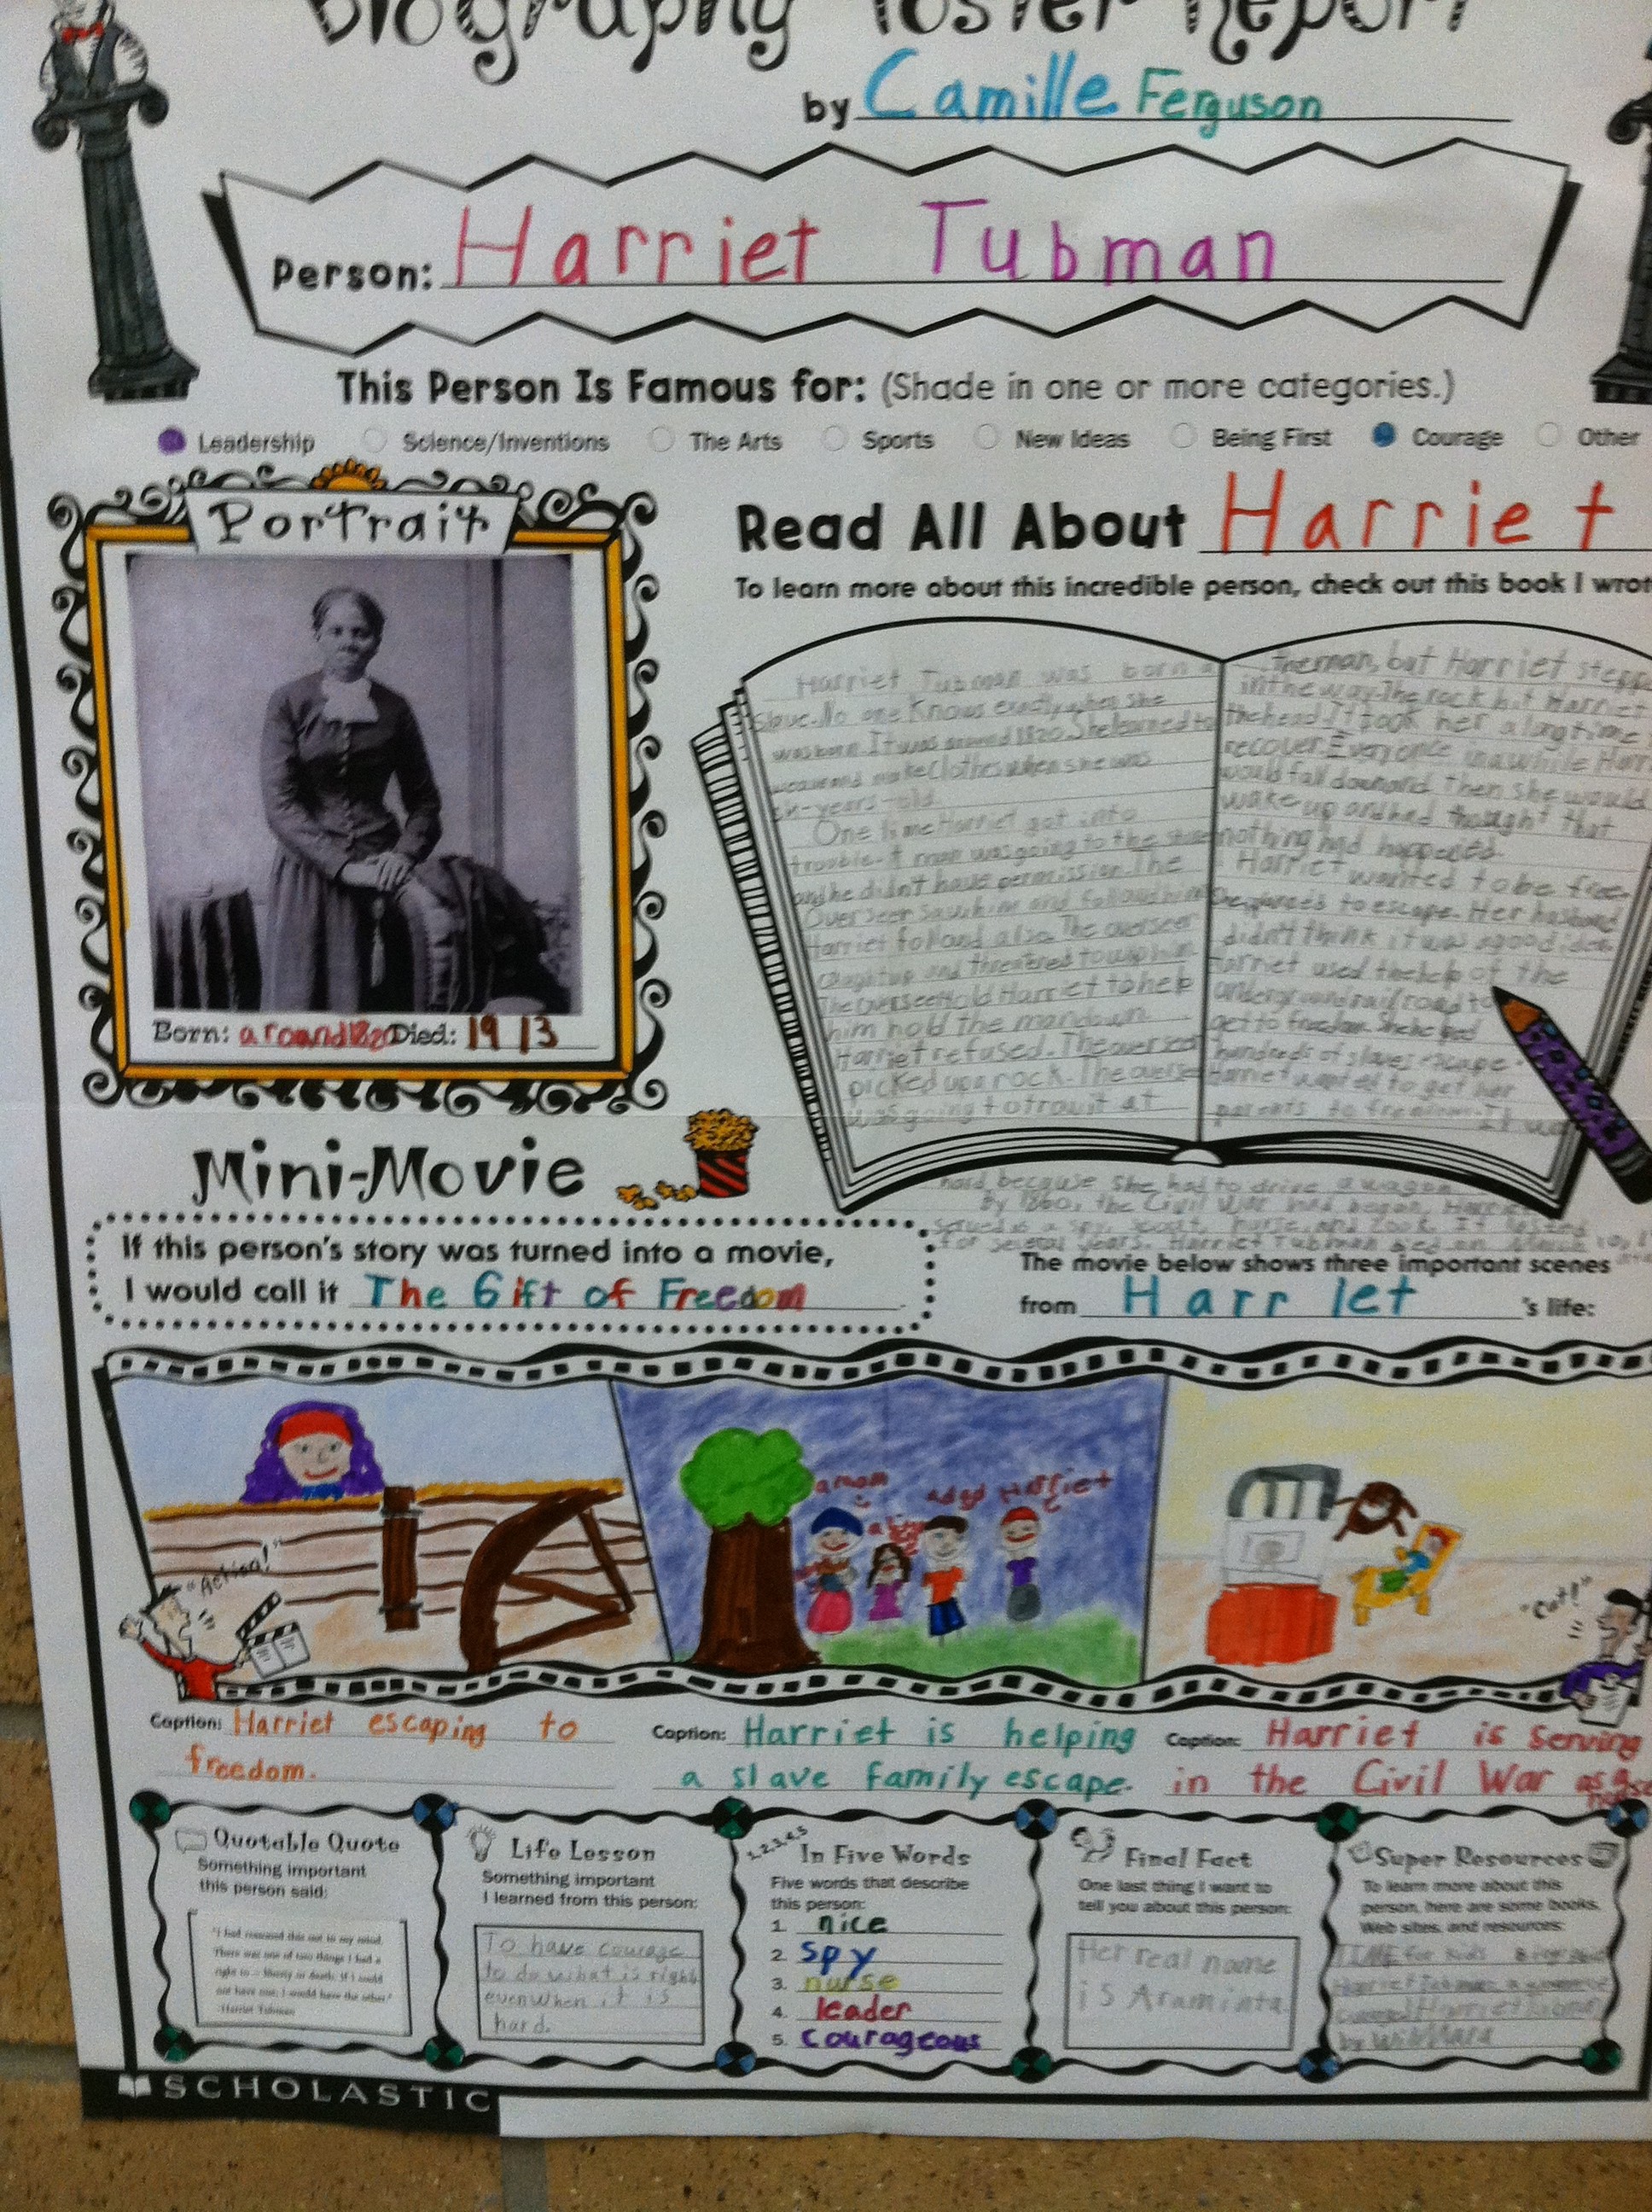 Biography Poster Report
by Camille Ferguson
Person: Harriet Tubman
This Person Is Famous for: (Shade in one or more categories.)
Leadership Science/Inventions The Arts Sports New Ideas Being First Courage Other
Portrait
Born: around 1820 Died: 1913
Read All About Harriet
To learn more about this incredible person, check out this book I wrot
Harriet Tubman was born a
slave. No one knows exactly when she
was born. It was around 1820. She learned to
weave and make clothes when she was
six-years-old.
One time Harriet got into
trouble. A man was going to the store
and he didn't have permission. The
Overseer saw him and followd him
Harriet follond also. The overseer
caught up and threatened to whip him
The overseer told Harriet to help
him hold the man down.
Harriet refused. The overseer
picked up a rock. The overse
was going to trow it at
The man, but Harriet stepp
in the way. The rock hit Harriet
the head. It took her a long time
recover. Every once in a while Harr
would fall down and. Then she would
wake up and had thought that
nothing had happened.
Harriet wanted to be free.
to escape. Her husband
didn't think it was a good idea.
Harriet used the help of the
underground railroad to
get to freedom. She helped
hundreds of slaves escape.
Harriet wanted to get her
parents to freedom. It was
hard because she had to drive a wagon
By 1860, the Civil War had began. Harriet
served as a spy, scout, nurse, and cook. It lasted
for several years. Harriet Tubman died on March 10,
Mini-Movie
If this person's story was turned into a movie,
I would call it The Gift of Freedom
The movie below shows three important scenes
from Harriet 's life:
"Action!"
a man
Harriet
"Cut!"
Caption: Harriet escaping to
freedom.
Caption: Harriet is helping
a slave family escape.
Caption: Harriet is serving
in the Civil War as a
Quotable Quote
Something important
this person said:
"I had reasoned this out in my mind.
There was one of two things I had a
right to - liberty or death; if I could
not have one, I would have the other."
-Harriet Tubman
Life Lesson
Something important
I learned from this person:
To have courage
to do what is right
even when it is
hard.
1,2,3,4,5
In Five Words
Five words that describe
this person:
1. nice
2. spy
3. nurse
4. leader
5. courageous
Final Fact
One last thing I want to
tell you about this person:
Her real name
is Araminta.
Super Resources
To learn more about this
person, here are some books,
Web sites, and resources:
TIME for Kids
Harriet Tubman: a
Harriet Tubman
by Wil Mara
SCHOLASTIC